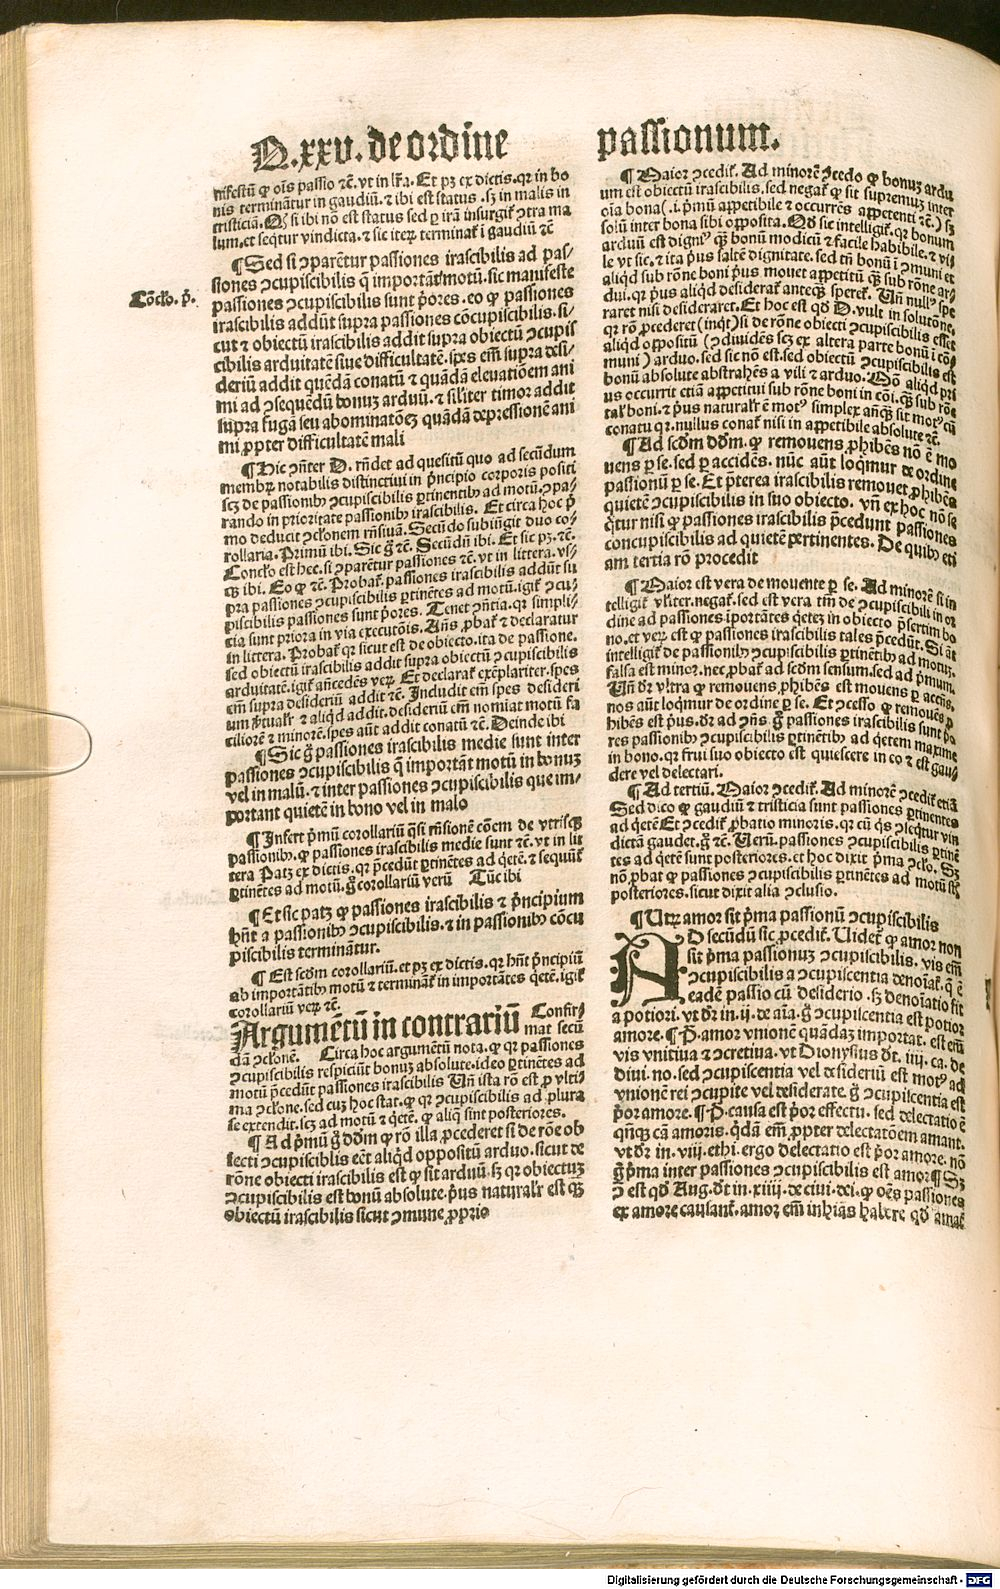 Q.xxv. de ordine
passionum.
nifestū ꝙ oīs passio ⁊c̄. vt in lr̄a. Et pꝫ ex dictis. qꝛ in bo
nis terminātur in gaudiū. ⁊ ibi est status. sꝫ in malis in
tristiciā. si ibi nō est status sed ꝑ irā insurgit̄ ꝯtra ma
lum. et seqtur vindicta. ⁊ sic iteꝝ terminat̄ ī gaudiū ⁊c̄
¶ Sed si ꝯparētur passiones irascibilis ad pas-
siones ꝯcupiscibilis q̄ importāt motū. sic manifeste
Cōclo. p̄.
passiones ꝯcupiscibilis sunt p̄ores. eo ꝙ passiones
irascibilis addūt supra passiones cōcupiscibilis. si-
cut ⁊ obiectū irascibilis addit supra obiectū ꝯcupis
cibilis arduitatē siue difficultatē. spes em̄ supra desi-
deriū addit quēdā conatū ⁊ quādā eleuatiōem ani
mi ad ꝯsequēdū bonuꝫ arduū. ⁊ siliter timor addit
supra fugā seu abominatōeꝫ quādā depressionē ani
mi ꝓpter difficultatē mali
¶ Hic ꝯn̄ter D. rn̄det ad quesitū quo ad secūdum
membꝝ notabilis distinctiui in p̄ncipio corporis positi
scꝫ de passionibꝰ ꝯcupiscibilis ꝑtinentibꝰ ad motū. ꝯpa-
rando in prioritate passionibꝰ irascibilis. Et circa hoc p̄
mo deducit ꝯclonem rn̄siuā. Secūdo subiūgit duo co-
rollaria. Primū ibi. Sic g̊ ⁊c̄. Secūdū ibi. Et sic pꝫ. ⁊c̄.
Conclo est hec. si ꝯparētur passiones ⁊c̄. vt in littera. vs-
qꝫ ibi. Eo ꝙ ⁊c̄. Probat̄. passiones irascibilis addūt su
pra passiones ꝯcupiscibilis ꝑtinētes ad motū. igit̄ ꝯcu-
piscibilis passiones sunt p̄ores. Tenet ꝯn̄tia. qꝛ simpli-
cia sunt priora in via executōis. Añs ꝓbat̄ ⁊ declaratur
in littera. Probat̄ qꝛ sicut est de obiecto. ita de passione.
sed obiectū irascibilis addit supra obiectū ꝯcupiscibilis
arduitatē. igit̄ añcedēs veꝝ. Et declarat̄ exēplariter. spes
em̄ supra desideriū addit ⁊c̄. Includit em̄ spes desideri
um ⁊ aliqd addit. desideriū em̄ nomiat motū fa
ciliorē ⁊ minorē. spes aūt addit conatū ⁊c̄. Deinde ibi
¶ Sic g̊ passiones irascibilis medie sunt inter
passiones ꝯcupiscibilis q̄ importāt motū in bonuꝫ
vel in malū. ⁊ inter passiones ꝯcupiscibilis que im-
portant quietē in bono vel in malo
¶ Infert p̄mū corollariū qsi rn̄sionē cōem de vtrisqꝫ
passionibꝰ. ꝙ passiones irascibilis medie sunt ⁊c̄. vt in lit
tera Patꝫ ex dictis. qꝛ p̄cedūt ꝑtinētes ad qetē. ⁊ sequūt̄
ꝑtinētes ad motū. g̊ corollariū verū Tūc ibi
¶ Et sic patꝫ ꝙ passiones irascibilis ⁊ p̄ncipium
hn̄t a passionibꝰ ꝯcupiscibilis. ⁊ in passionibꝰ cōcu
piscibilis terminātur.
¶ Est scdm corollariū. et pꝫ ex dictis. qꝛ hn̄t p̄ncipiū
ab importātibꝰ motū ⁊ terminat̄ in importātes qetē. igit̄
corollariū veꝝ ⁊c̄.
Argumētū in contrariū Confir-
mat secū
dā ꝯclonē. Circa hoc argumētū nota. ꝙ qꝛ passiones
ꝯcupiscibilis respiciūt bonuꝫ absolute. ideo ꝑtinētes ad
motū p̄cedūt passiones irascibilis Vn̄ ista rō est ꝓ vlti-
ma ꝯclone. sed cuꝫ hoc stat. ꝙ qꝛ ꝯcupiscibilis ad plura
se extendit. scꝫ ad motū ⁊ qetē. ꝙ aliq̄ sint posteriores.
¶ Ad p̄mū g̊ dd̄m ꝙ rō illa ꝓcederet si de rōe ob
iecti ꝯcupisciblis eēt aliqd oppositū arduo. sicut de
rōne obiecti irascibilis est ꝙ sit arduū. sꝫ qꝛ obiectuꝫ
ꝯcupiscibilis est bonū absolute. p̄us naturalr est qꝫ
obiectū irascibilis sicut ꝯmune ꝓprio
¶ Maior ꝯcedit̄. Ad minorē ꝯcedo ꝙ bonuꝫ ardu
um est obiectū irascibilis. sed negat̄ ꝙ sit supremuꝫ inter
oīa bona (.i. p̄mū appetibile ⁊ occurrēs appetenti ⁊c̄.) sꝫ
solū inter bona sibi opposita. Qd sic intelligit̄. qꝛ bonum
arduū est digniꝰ qꝫ bonū modicū ⁊ facile habibile. ⁊ vi-
le vt sic. ⁊ ita p̄us saltē dignitate. sed tn̄ bonū ī ꝯmuni et
aliqd sub rōne boni p̄us mouet appetitū qꝫ sub rōne ar-
dui. qꝛ p̄us aliqd desiderat̄ anteqꝫ speret̄. Vn̄ nullꝰ spe
raret nisi desideraret. Et hoc est qd D. vult in solutōne.
qꝛ rō ꝓcederet (inqt) si de rōne obiecti ꝯcupiscibilis esset
aliqd oppositū (ꝯdiuidēs scꝫ ex altera parte bonū ī cō-
muni) arduo. sed sic nō est. sed obiectū ꝯcupiscibilis est
bonū absolute abstrahēs a vili ⁊ arduo. Mō aliqd pri
us occurrit etiā appetitui sub rōne boni in cōi. qꝫ sub rōe
talꝭ boni. ⁊ p̄us naturalr ē motꝰ simplex añqꝫ sit motꝰ cū
conatu qꝛ. nullus conat̄ nisi in appetibile absolute ⁊c̄.
¶ Ad scd̄m dd̄m. ꝙ remouens ꝓhibēs nō ē mo
uens ꝑ se. sed ꝑ accidēs. nūc aūt loqmur de ordine
passionū ꝑ se. Et p̄terea irascibilis remouet ꝓhibēs
quietē ꝯcupiscibilis in suo obiecto. vn̄ ex hoc nō se
qtur nisi ꝙ passiones irascibilis p̄cedunt passiones
concupiscibilis ad quietē ꝑtinentes. De quibꝰ eti
am tertia rō procedit
¶ Maior est vera de mouente ꝑ se. Ad minorē si in
telligit̄ vlr̄iter. negat̄. sed est vera tm̄ de ꝯcupiscibili in or
dine ad passiones īportātes qetez in obiecto p̄sertim bo
no. et veꝝ est ꝙ passiones irascibilis tales p̄cedūt. Si aūt
intelligit̄ de passionibꝰ ꝯcupiscibilis ꝑtinētibꝰ ad motuꝫ.
falsa est minor. nec ꝓbat̄ ad scdm sensum. sed ad p̄mum.
Vn̄ dr̄ vltra ꝙ remouens ꝓhibēs est mouens ꝑ accn̄s.
nos aūt loqmur de ordine ꝑ se. Et ꝯcesso ꝙ remouēs ꝓ
hibēs est p̄us. dr̄ ad ꝯn̄s g̊ passiones irascibilis sunt p̄o
res passionibꝰ ꝯcupiscibilis ꝑtinētibꝰ ad qetem maxime
in bono. qꝛ frui suo obiecto est quiescere in eo ⁊ est gau-
dere vel delectari.
¶ Ad tertiū. Maior ꝯcedit̄. Ad minorē ꝯcedit̄ etiā
Sed dico ꝙ gaudiū ⁊ tristicia sunt passiones ꝑtinentes
ad qetē Et ꝯcedit̄ ꝓbatio minoris. qꝛ cū qs ꝯseqtur vin
dictā gaudet. g̊ ⁊c̄. Verū. passiones ꝯcupiscibilis ꝑtinē
tes ad qetē sunt posteriores. et hoc dixit p̄ma ꝯclo. Sꝫ
nō ꝓbat ꝙ passiones ꝯcupiscibilis ꝑtinētes ad motū sꝫ
posteriores. sicut dixit alia ꝯclusio.
¶ Utꝝ amor sit p̄ma passionū ꝯcupiscibilis
AD secūdū sic ꝓcedit̄. Videt̄ ꝙ amor non
sit p̄ma passionuꝫ ꝯcupiscibilis. vis em̄
ꝯcupiscibilis a ꝯcupiscentia denoīat̄. q̄ ē
eadē passio cū desiderio. sꝫ denoīatio fit
a potiori. vt dr̄ in .ii. de aīa. g̊ ꝯcupiscentia est potior
amore. ¶ P̄. amor vnionē quādaꝫ importat. est em̄
vis vnitiua ⁊ ꝯcretiua. vt Dionysius dt̄. iiii. ca. de
diui. no. sed ꝯcupiscentia vel desideriū est motꝰ ad
vnionē rei ꝯcupite vel desiderate. g̊ ꝯcupiscentia est
p̄or amore. ¶ P̄. causa est p̄or effectu. sed delectatio ē
qn̄qꝫ cā amoris. qdā em̄ ꝓpter delectatōem amant.
vt dr̄ in .viij. ethi. ergo delectatio est p̄or amore. nō
g̊ p̄ma inter passiones ꝯcupiscibilis est amor ¶ Sꝫ
ꝯ est qd Aug. dt̄ in .xiiii. de ciui. dei. ꝙ oēs passiones
ex amore causant̄. amor em̄ inhiās habere qd amat̄
Digitalisierung gefördert durch die Deutsche Forschungsgemeinschaft - DFG